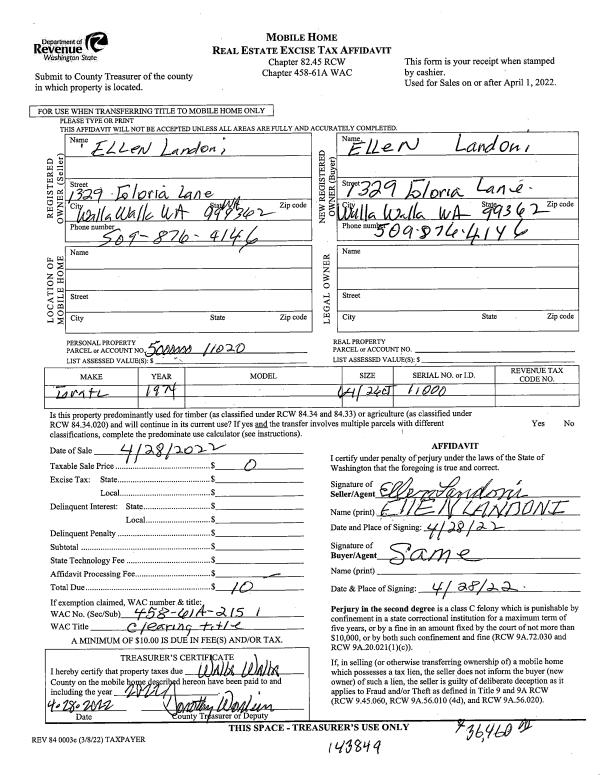 Department of
Revenue
Washington State
Submit to County Treasurer of the county
in which property is located.
MOBILE HOME
REAL ESTATE EXCISE TAX AFFIDAVIT
Chapter 82.45 RCW
Chapter 458-61A WAC
This form is your receipt when stamped
by cashier.
Used for Sales on or after April 1, 2022.
FOR USE WHEN TRANSFERRING TITLE TO MOBILE HOME ONLY
PLEASE TYPE OR PRINT
THIS AFFIDAVIT WILL NOT BE ACCEPTED UNLESS ALL AREAS ARE FULLY AND ACCURATELY COMPLETED.
REGISTERED OWNER (Seller)
Name ELLEN Landoni
Street 1329 Gloria Lane
City Walla Walla WA State WA 99362 Zip code
Phone number 509-876-4146
NEW REGISTERED OWNER (Buyer)
Name ELLEN Landoni
Street 1329 Gloria Lane
City Walla Walla WA State 99362 Zip code
Phone number 509-876-4146
LOCATION OF MOBILE HOME
Name
Street
City State Zip code
LEGAL OWNER
Name
Street
City State Zip code
PERSONAL PROPERTY
PARCEL or ACCOUNT NO. 11020
LIST ASSESSED VALUE(S): $
REAL PROPERTY
PARCEL or ACCOUNT NO.
LIST ASSESSED VALUE(S): $
MAKE YEAR MODEL SIZE SERIAL NO. or I.D. REVENUE TAX CODE NO.
1974 11000
Is this property predominantly used for timber (as classified under RCW 84.34 and 84.33) or agriculture (as classified under
RCW 84.34.020) and will continue in its current use? If yes and the transfer involves multiple parcels with different Yes No
classifications, complete the predominate use calculator (see instructions).
Date of Sale 4/28/2022
Taxable Sale Price $ 0
Excise Tax: State $
Local $
Delinquent Interest: State $
Local $
Delinquent Penalty $
Subtotal $
State Technology Fee $
Affidavit Processing Fee $ —
Total Due $ 10
If exemption claimed, WAC number & title:
WAC No. (Sec/Sub) 458-61A-215 1
WAC Title Clearing title
A MINIMUM OF $10.00 IS DUE IN FEE(S) AND/OR TAX.
TREASURER'S CERTIFICATE
I hereby certify that property taxes due Walla Walla
County on the mobile home described hereon have been paid to and
including the year 2022
4-28-2022
Date County Treasurer or Deputy
AFFIDAVIT
I certify under penalty of perjury under the laws of the State of
Washington that the foregoing is true and correct.
Signature of
Seller/Agent Ellen Landoni
Name (print) ELLEN LANDONI
Date and Place of Signing: 4/28/22
Signature of
Buyer/Agent Same
Name (print)
Date & Place of Signing: 4/28/22
Perjury in the second degree is a class C felony which is punishable by
confinement in a state correctional institution for a maximum term of
five years, or by a fine in an amount fixed by the court of not more than
$10,000, or by both such confinement and fine (RCW 9A.72.030 and
RCW 9A.20.021(1)(c)).
If, in selling (or otherwise transferring ownership of) a mobile home
which possesses a tax lien, the seller does not inform the buyer (new
owner) of such a lien, the seller is guilty of deliberate deception as it
applies to Fraud and/or Theft as defined in Title 9 and 9A RCW
(RCW 9.45.060, RCW 9A.56.010 (4d), and RCW 9A.56.020).
THIS SPACE - TREASURER'S USE ONLY
$36,460 00
REV 84 0003e (3/8/22) TAXPAYER
143849